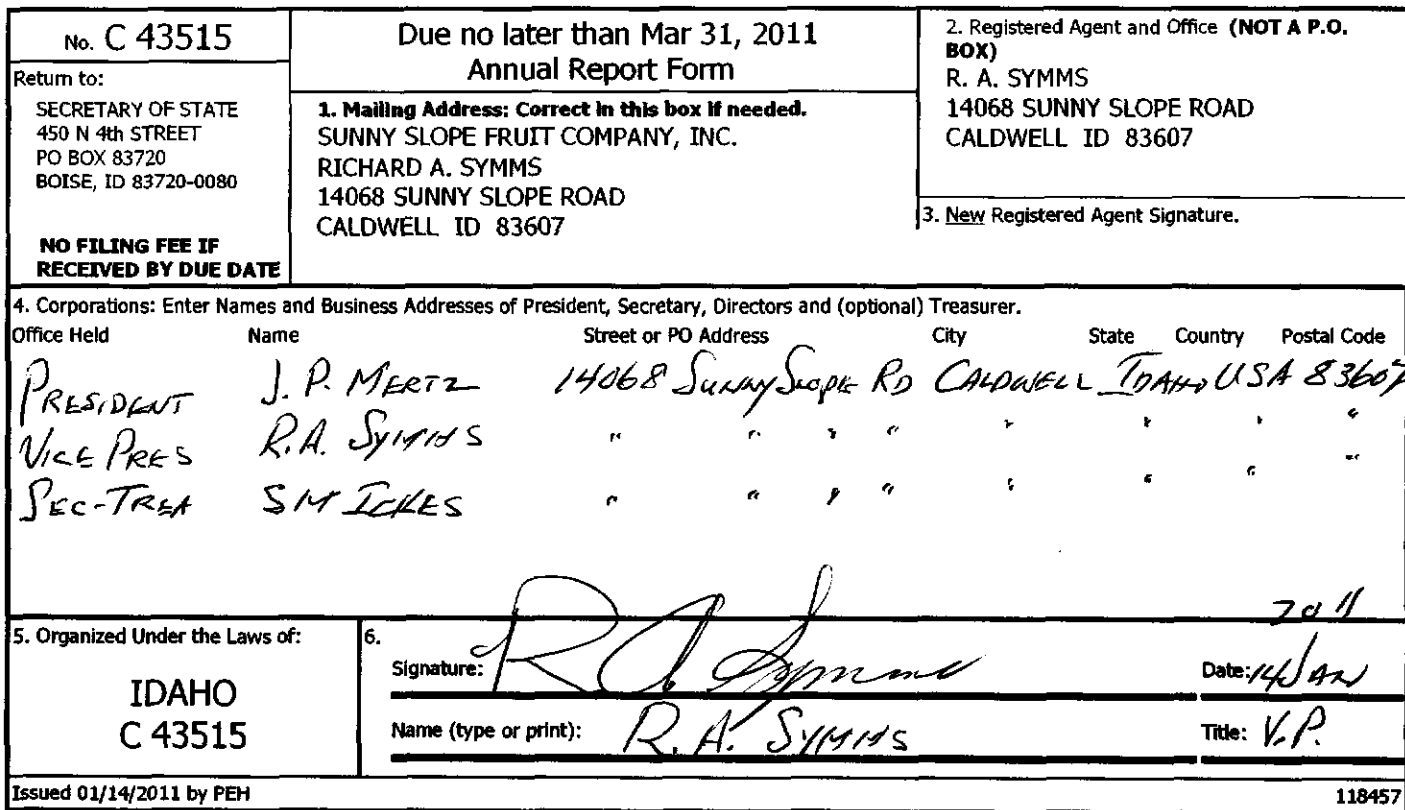 No. C 43515
Return to:
SECRETARY OF STATE
450 N 4th STREET
PO BOX 83720
BOISE, ID 83720-0080
NO FILING FEE IF
RECEIVED BY DUE DATE
Due no later than Mar 31, 2011
Annual Report Form
1. Mailing Address: Correct in this box if needed.
SUNNY SLOPE FRUIT COMPANY, INC.
RICHARD A. SYMMS
14068 SUNNY SLOPE ROAD
CALDWELL ID 83607
2. Registered Agent and Office (NOT A P.O.
BOX)
R. A. SYMMS
14068 SUNNY SLOPE ROAD
CALDWELL ID 83607
3. New Registered Agent Signature.
4. Corporations: Enter Names and Business Addresses of President, Secretary, Directors and (optional) Treasurer.
Office Held Name Street or PO Address City State Country Postal Code
PRESIDENT J. P. MERTZ 14068 SUNNY SLOPE RD CALDWELL IDAHO USA 83607
VICE PRES R.A. SYMMS " " " " " " " "
SEC-TREA SM ICKES " " " " " " " "
5. Organized Under the Laws of:
IDAHO
C 43515
6.
Signature: R A Symms
2011
Date: 14 JAN
Name (type or print): R. A. SYMMS
Title: V.P.
Issued 01/14/2011 by PEH
118457